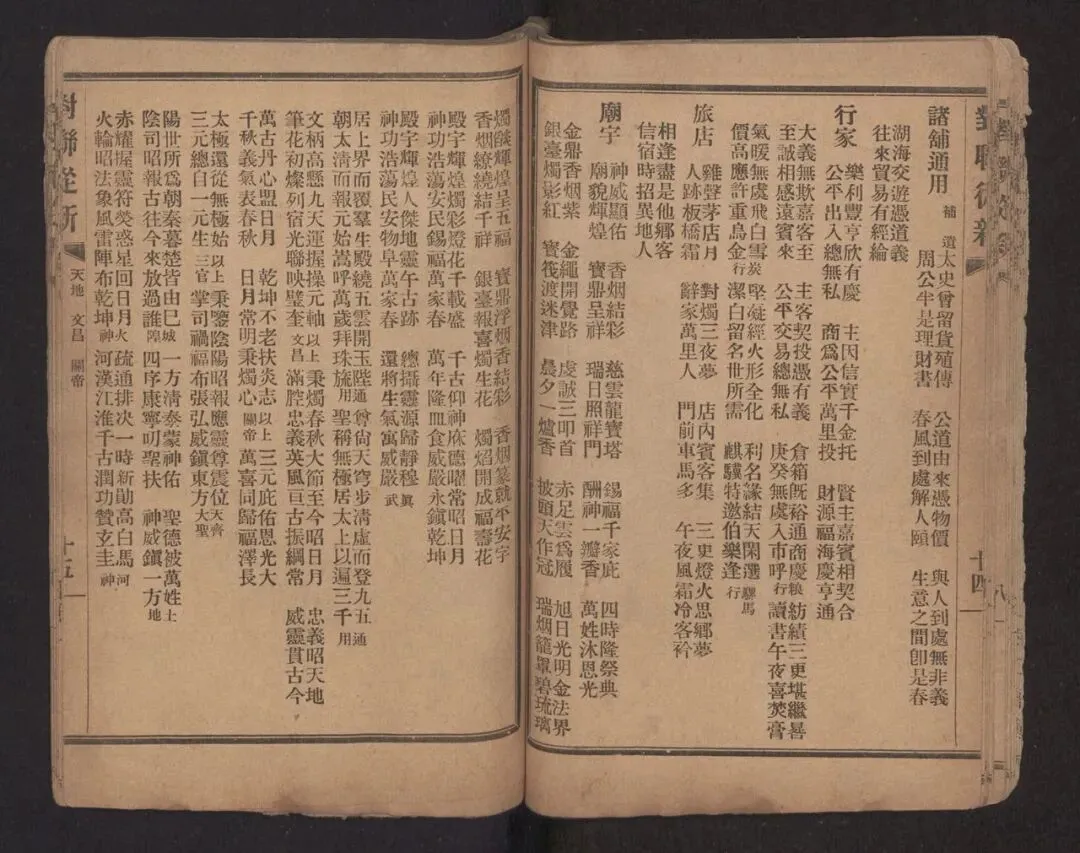 對聯從新
十四
諸舖通用 補遺 太史曾留貨殖傳 公道由來憑物價 與人到處無非義
周公半是理財書 春風到處解人頤 生意之間卽是春
湖海交遊憑道義
往來貿易有經綸
行家 樂利豐亨欣有慶 主因信實千金托 賢主嘉賓相契合
公平出入總無私 商爲公平萬里投 財源福海慶亨通
大義無欺嘉客至 主客契投憑有義 倉箱旣裕通商慶 粮行 紡績三更堪繼晷
至誠相感遠賓來 公平交易總無私 庚癸無虞入市呼 讀書午夜喜焚膏
氣暖無虞飛白雪 炭行 堅凝經火形全化 利名緣結天閑選 騾馬行
價高應許重烏金 潔白留名世所需 麒驥特邀伯樂逢
旅店 雞聲茅店月 對燭三夜夢 店內賓客集 三更燈火思鄉夢
人跡板橋霜 辭家萬里人 門前車馬多 午夜風霜冷客衿
相逢盡是他鄉客
信宿時招異地人
廟宇 神威顯佑 香烟結彩 慈雲龍寶塔 錫福千家庇 四時隆祭典
廟貌輝煌 寶鼎呈祥 瑞日照祥門 酬神一瓣香 萬姓沐恩光
金鼎香烟紫 金繩開覺路 虔誠三叩首 赤足雲爲履 旭日光明金法界
銀臺燭影紅 寶筏渡迷津 晨夕一爐香 披頭天作冠 瑞烟籠罩碧琉璃
燭燄輝煌呈五福 寶鼎浮烟香結彩 香烟篆就平安字
香烟繚繞結千祥 銀臺報喜燭生花 燭焰開成福壽花
殿宇輝煌燭彩燈花千載盛 千古仰神庥德曜常昭日月
神功浩蕩安民錫福萬家春 萬年隆血食威嚴永鎮乾坤
殿宇輝煌人傑地靈午古跡 總攝靈源歸靜穆 眞武
神功浩蕩民安物阜萬家春 還將生氣寓威嚴
居上界而覆羣生殿繞五雲開玉陛 通用 尊尙天穹步淸虛而登九五 通用
朝太淸而報元始嵩呼萬歲拜珠旒 聖稱無極居太上以遍三千
文柄高懸九天運握操元軸 以上文昌 秉燭春秋大節至今昭日月 忠義昭天地
筆花初燦列宿光聯映璧奎 滿腔忠義英風亘古振綱常 威靈貫古今
萬古丹心盟日月 乾坤不老扶炎志 以上關帝 三元庇佑恩光大
千秋義氣表春秋 日月常明秉燭心 萬喜同歸福澤長
太極還從無極始 以上三官 秉鑒陰陽昭報應靈尊震位 天齊大聖
三元總自一元生 掌司禍福布張弘威鎭東方
陽世所爲朝秦暮楚皆由巳 城隍 一方淸泰蒙神佑 聖德被萬姓 土地
陰司昭報古往今來放過誰 四序康寧叨聖扶 神威鎭一方
赤耀握靈符熒惑星回日月 火神 疏通排决一時新勛高白馬 河神
火輪昭法象風雷陣布乾坤 河漢江淮千古潤功贊玄圭
對聯從新
天地 文昌 關帝
十五